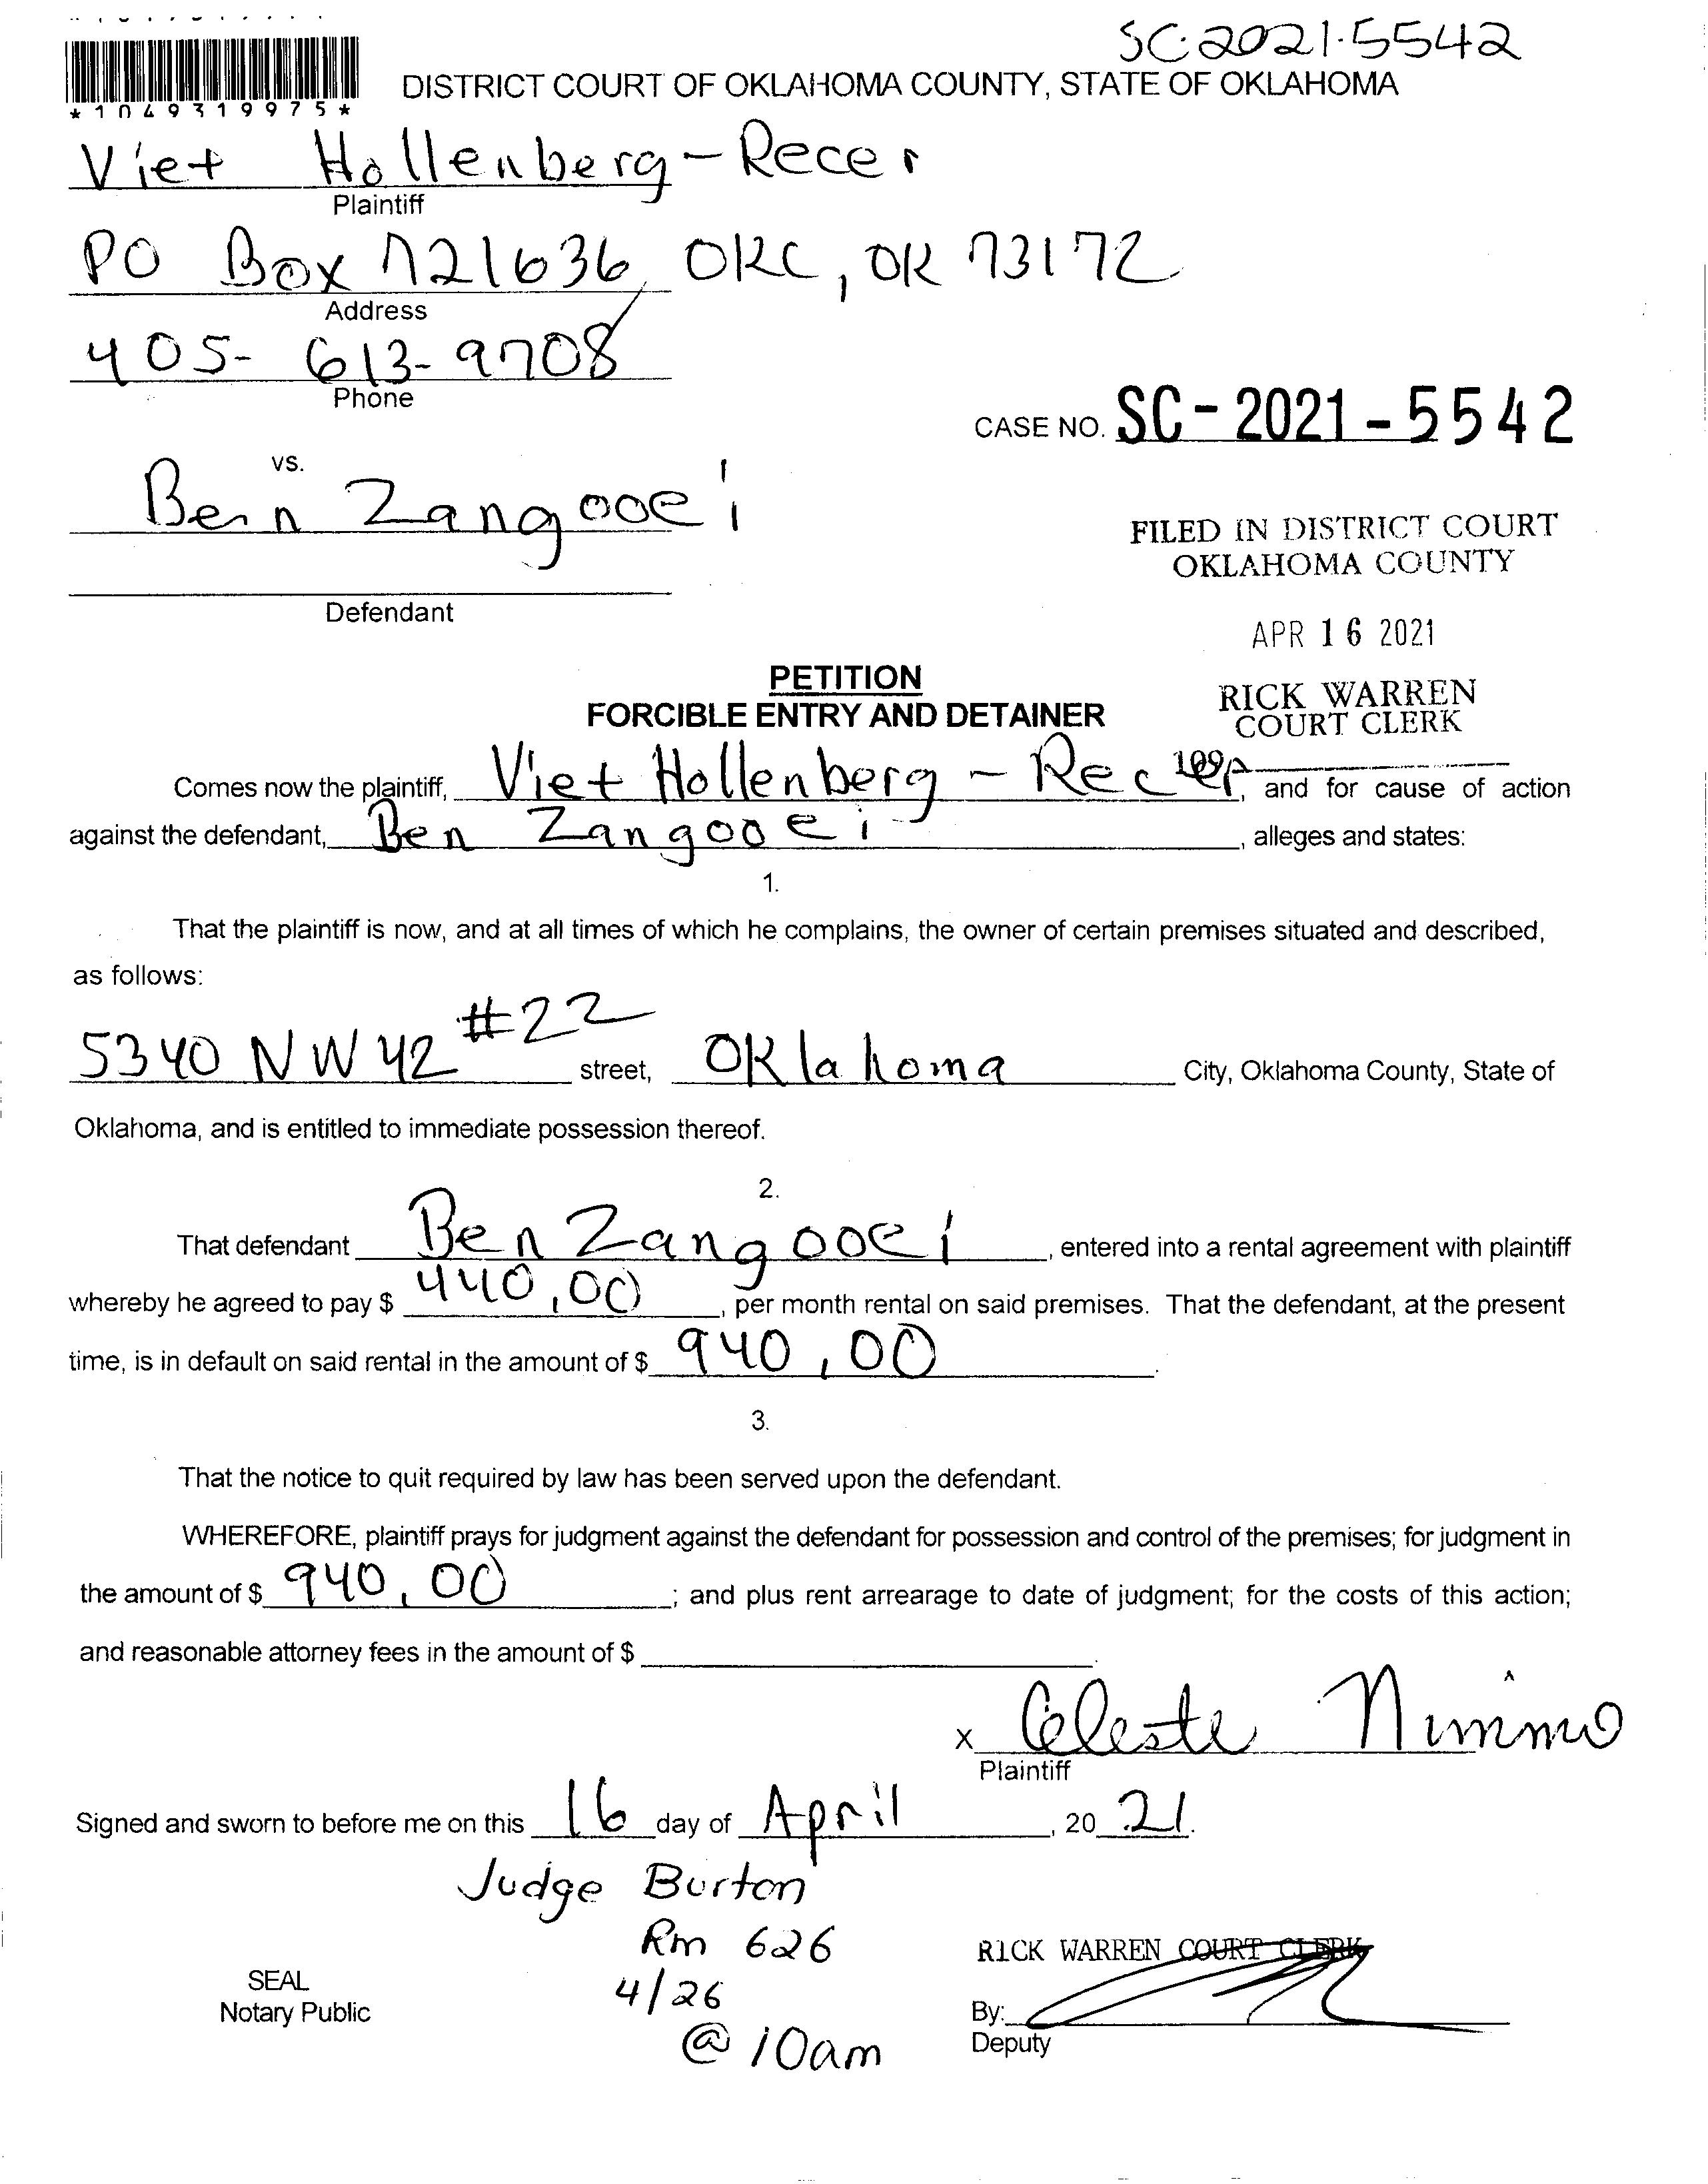 SC-2021-5542
*1049319975*
DISTRICT COURT OF OKLAHOMA COUNTY, STATE OF OKLAHOMA
Viet Hollenberg-Recer
Plaintiff
PO Box 721636, OKC, OK 73172
Address
405-613-9708
Phone
CASE NO. SC-2021-5542
vs.
Ben Zangooei
FILED IN DISTRICT COURT
OKLAHOMA COUNTY
Defendant
APR 16 2021
PETITION
FORCIBLE ENTRY AND DETAINER
RICK WARREN
COURT CLERK
109
Comes now the plaintiff, Viet Hollenberg-Recer, and for cause of action
against the defendant, Ben Zangooei, alleges and states:
1.
That the plaintiff is now, and at all times of which he complains, the owner of certain premises situated and described,
as follows:
5340 NW 42 #22 street, Oklahoma City, Oklahoma County, State of
Oklahoma, and is entitled to immediate possession thereof.
2.
That defendant Ben Zangooei, entered into a rental agreement with plaintiff
whereby he agreed to pay $ 440.00, per month rental on said premises. That the defendant, at the present
time, is in default on said rental in the amount of $ 940.00.
3.
That the notice to quit required by law has been served upon the defendant.
WHEREFORE, plaintiff prays for judgment against the defendant for possession and control of the premises; for judgment in
the amount of $ 940.00; and plus rent arrearage to date of judgment; for the costs of this action;
and reasonable attorney fees in the amount of $
x Celeste Nimmo
Plaintiff
Signed and sworn to before me on this 16 day of April, 20 21.
Judge Burton
Rm 626
4/26
@ 10am
RICK WARREN COURT CLERK
SEAL
Notary Public
By:
Deputy